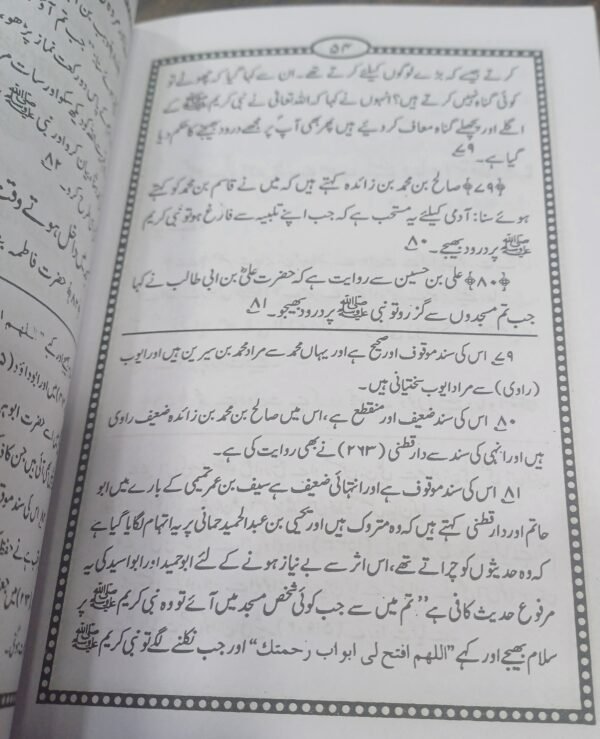 ۵۴
کرتے جیسے کہ بڑے لوگوں کیلئے کرتے تھے۔ ان سے کہا گیا کہ چھوٹے تو
کوئی گناہ نہیں کرتے ہیں؟ انہوں نے کہا کہ اللہ تعالیٰ نے نبی کریم ﷺ کے
اگلے اور پچھلے گناہ معاف کر دیئے ہیں پھر بھی آپ پر مجھے درود بھیجنے کا حکم دیا
گیا ہے۔ ۷۹
﴿۷۹﴾ صالح بن محمد بن زائدہ کہتے ہیں کہ میں نے قاسم بن محمد کو کہتے
ہوئے سنا: آدمی کیلئے یہ مستحب ہے کہ جب اپنے تلبیہ سے فارغ ہو تو نبی کریم
ﷺ پر درود بھیجے۔ ۸۰
﴿۸۰﴾ علی بن حسین سے روایت ہے کہ حضرت علیؓ بن ابی طالب نے کہا
جب تم مسجدوں سے گزرو تو نبی ﷺ پر درود بھیجو۔ ۸۱
۷۹ اس کی سند موقوف اور صحیح ہے اور یہاں محمد سے مراد محمد بن سیرین ہیں اور ایوب
(راوی) سے مراد ایوب سختیانی ہیں۔
۸۰ اس کی سند ضعیف اور منقطع ہے، اس میں صالح بن محمد بن زائدہ ضعیف راوی
ہیں اور انہی کی سند سے دارقطنی (۲۶۳) نے بھی روایت کی ہے۔
۸۱ اس کی سند موقوف ہے اور انتہائی ضعیف ہے سیف بن عمر تمیمی کے بارے میں ابو
حاتم اور دارقطنی کہتے ہیں کہ وہ متروک ہیں اور یحیٰی بن عبدالحمید حمانی پر یہ اتہام لگایا گیا ہے
کہ وہ حدیثوں کو چراتے تھے، اس اثر سے بے نیاز ہونے کے لئے ابوحمید اور ابواسید کی یہ
مرفوع حدیث کافی ہے ”تم میں سے جب کوئی شخص مسجد میں آئے تو وہ نبی کریم ﷺ پر
سلام بھیجے اور کہے ”اللهم افتح لی ابواب رحمتك“ اور جب نکلنے لگے تو نبی کریم ﷺ